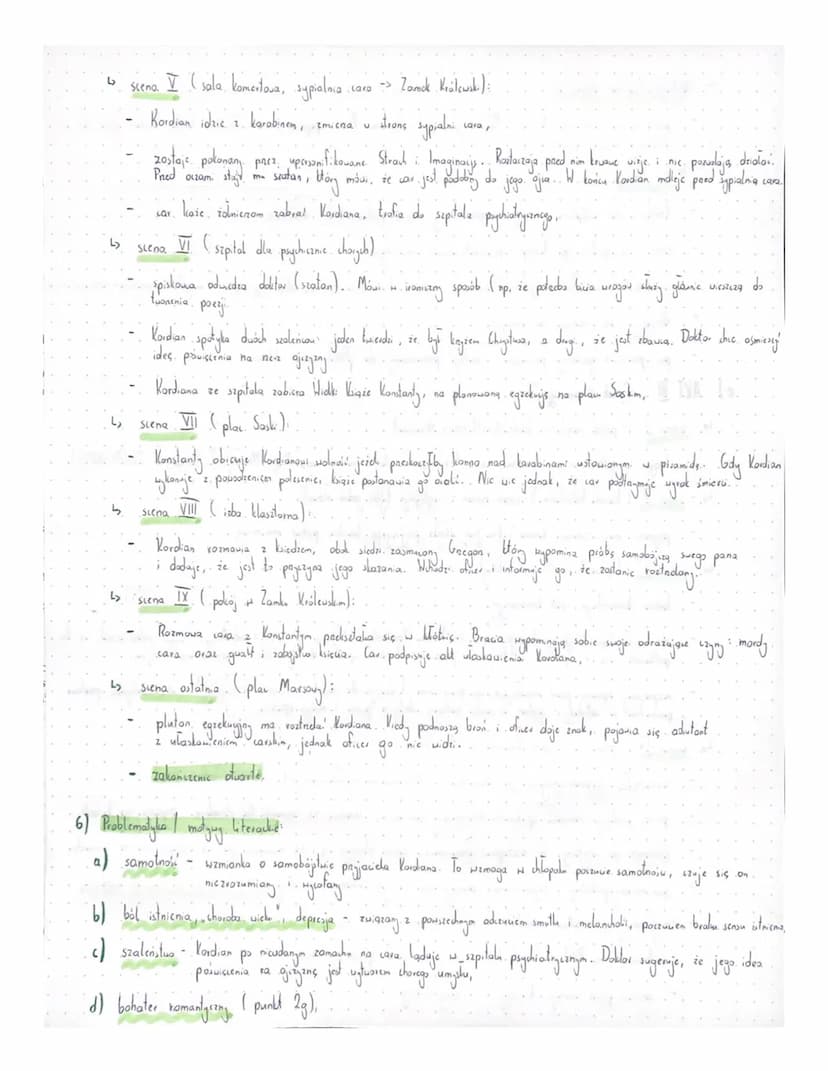 ↳ scena V (sala koncertowa, sypialnia cara -> Zamek Królewski):
- Kordian idzie z karabinem, zmierza w stronę sypialni cara,
- zostaje pokonany przez upersonifikowane Strach i Imaginację. Roztaczają przed nim krwawe wizje i nie pozwalają działać.
Przed oczami staje mu szatan, który mówi, że car jest podobny do jego ojca. W końcu Kordian mdleje przed sypialnią cara.
- car każe żołnierzom zabrać Kordiana, trafia do szpitala psychiatrycznego,
↳ scena VI (szpital dla psychicznie chorych)
- spiskowca odwiedza doktor (szatan). Mówi w ironiczny sposób (np. że potrzeba bicia wrogów służy głównie wieszczą do
tworzenia poezji.
- Kordian spotyka dwóch szaleńców: jeden twierdzi, że był krzyżem Chrystusa, a drugi, że jest zbawcą. Doktor chce ośmieszyć
ideę poświęcenia na rzecz ojczyzny.
- Kordiana ze szpitala zabiera Wielki Książe Konstanty, na planowaną egzekucję na placu Saskim,
↳ scena VII (plac Saski):
- Konstanty obiecuje Kordianowi wolność jeżeli przeskoczyłby konno nad karabinami ustawionymi w piramidę. Gdy Kordian
wykonuje z powodzeniem polecenie, książe postanawia go ocalić. Nie wie jednak, że car podtrzymuje wyrok śmierci.
↳ scena VIII (izba klasztorna):
- Kordian rozmawia z księdzem, obok siedzi zasmucony Grzegorz, który wypomina próbę samobójczą swego pana
i dodaje, że jest to przyczyna jego skazania. Wchodzi oficer i informuje go, że zostanie rozstrzelany.
↳ scena IX (pokój w Zamku Królewskim):
- Rozmowa cara z Konstantym przekształca się w kłótnię. Bracia wypominają sobie swoje odrażające czyny: mordy
cara oraz gwałt i zabójstwo księcia. Car podpisuje akt ułaskawienia Kordiana,
↳ scena ostatnia (plac Marsowy):
- pluton egzekucyjny ma rozstrzelać Kordiana. Kiedy podnoszą broń i oficer daje znak, pojawia się adiutant
z ułaskawieniem carskim, jednak oficer go nie widzi.
- zakończenie otwarte.
6) Problematyka / motywy literackie:
a) samotność - wzmianka o samobójstwie przyjaciela Kordiana. To wzmaga w chłopaku poczucie samotności, czuje się on
niezrozumiany i wycofany
b) ból istnienia, "choroba wieku", depresja - związany z powszechnym odczuciem smutku i melancholii, poczuciem braku sensu istnienia,
c) szaleństwo - Kordian po nieudanym zamachu na cara ląduje w szpitalu psychiatrycznym. Doktor sugeruje, że jego idea
poświęcenia za ojczyznę jest wytworem chorego umysłu,
d) bohater romantyczny (punkt 2g),